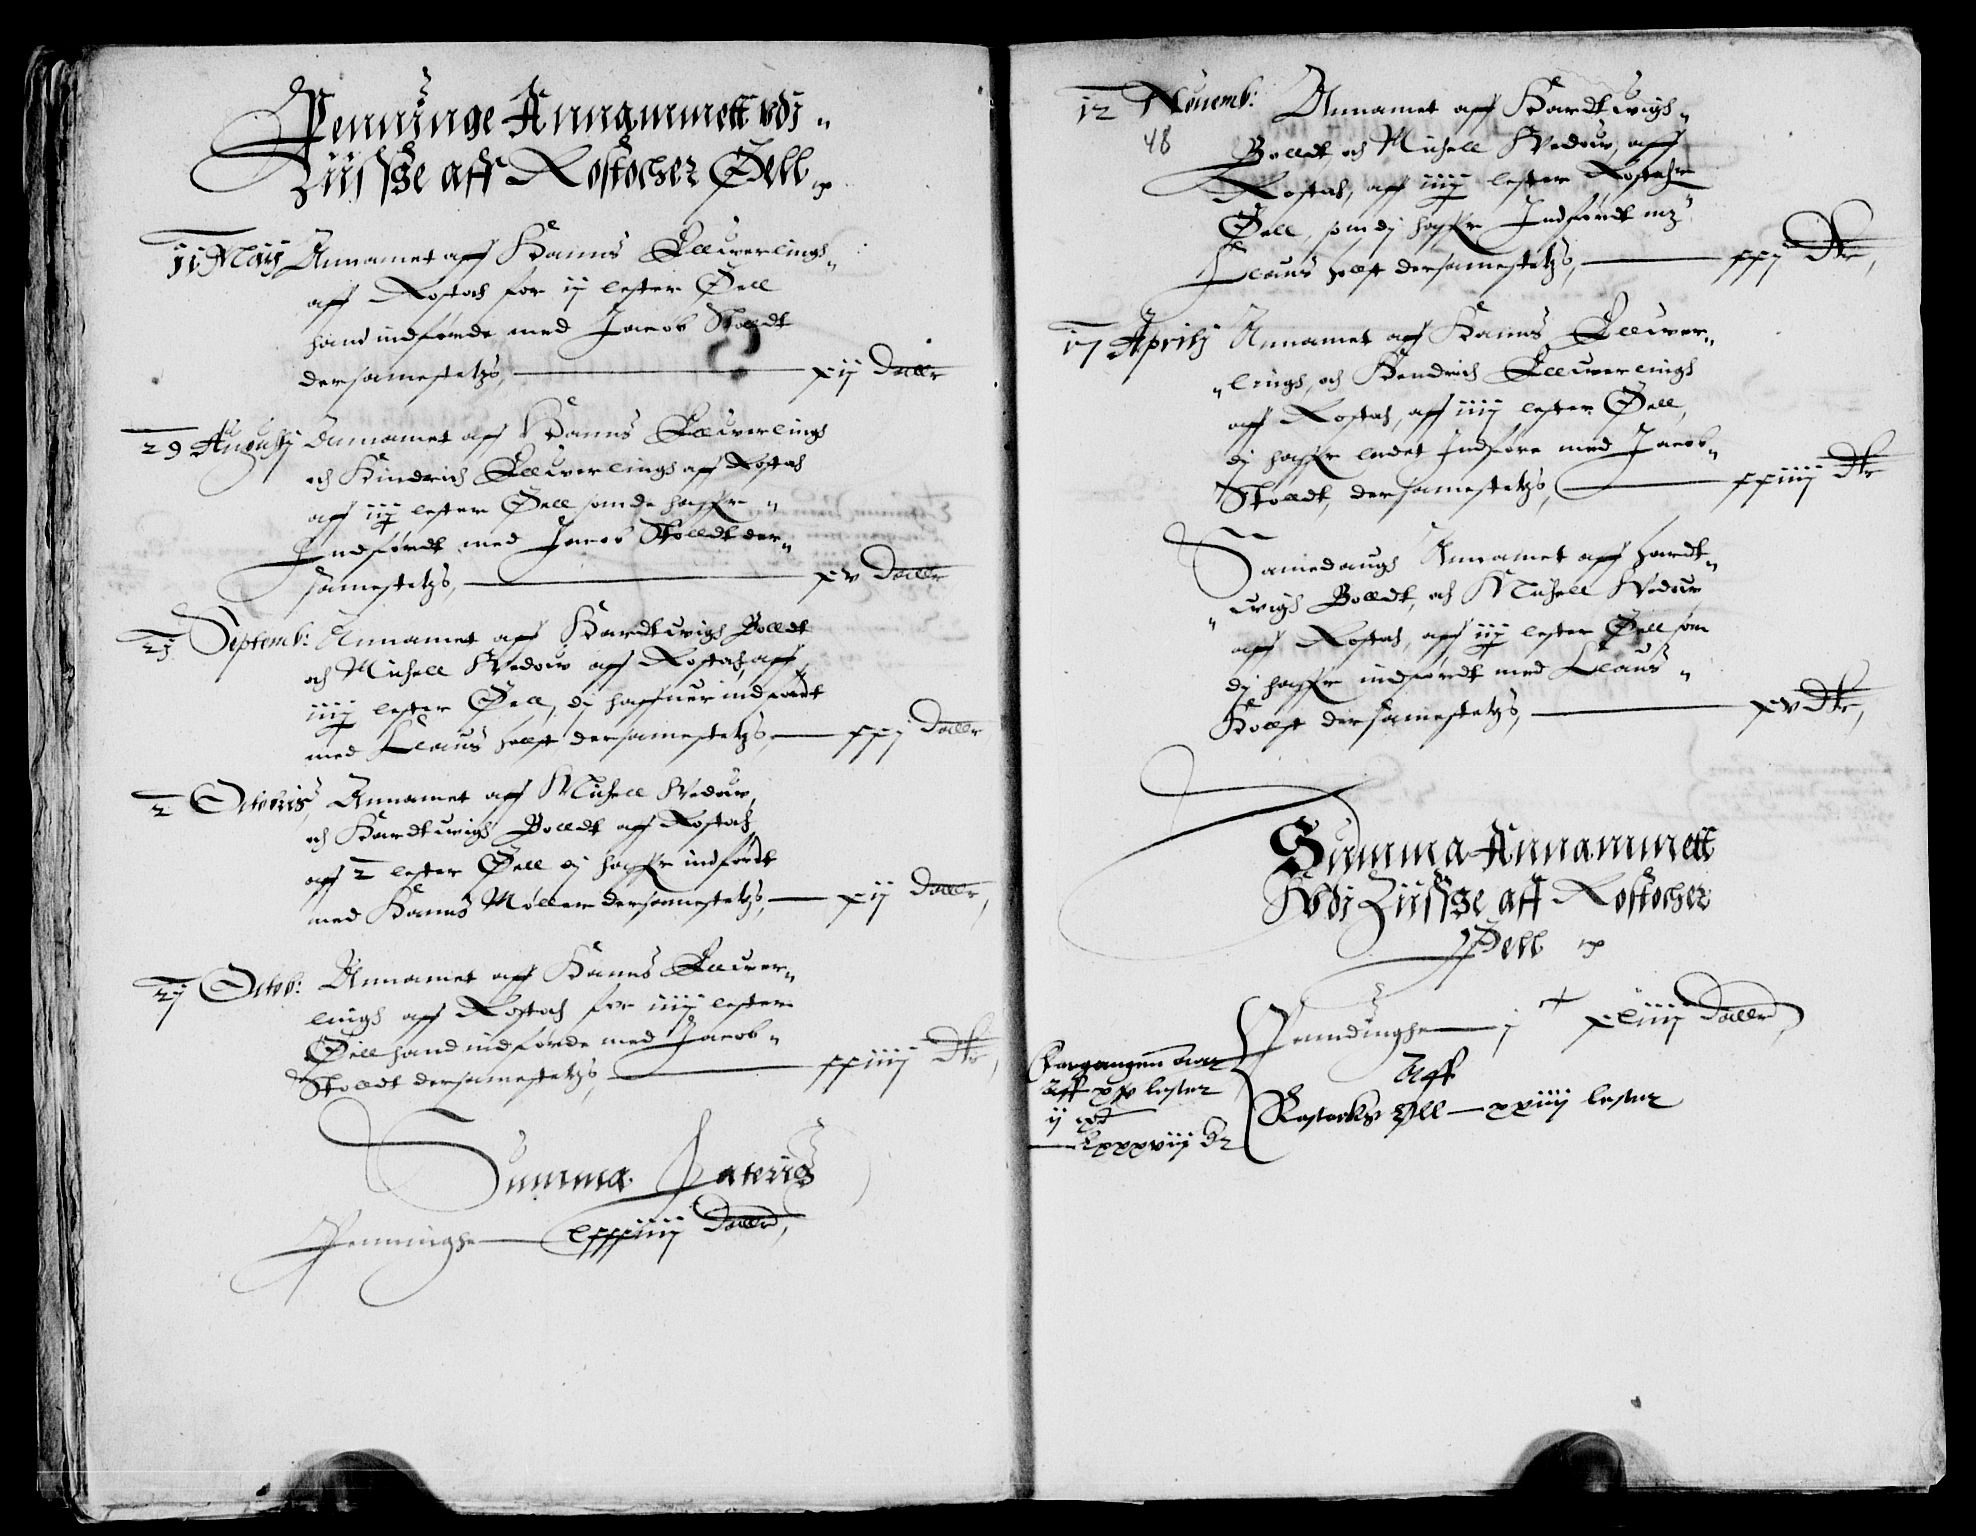 Penninge Annammett vdj
Ziisse aff Rostocher Øell
11 Maij Annamet aff Hanns Elluerlings
aff Rostoch for ij lester Øell
hand indførde med Jacob Stoldt
dersamestetzs, xij Daller
29 Augustj Annamet aff Hanns Elluerlings
och Hindrich Elluerlings aff Rostoch
aff iij lester Øell som de haffer
Indførdt med Jacob Stoldt der
samestetzs, xv Daller
23 Septemb: Annamet aff Hardtwigh Bolldt
och Michell Wedow aff Rostoch, aff
iiij lester Øell, dj haffuer indførdt
med Claus Holst dersamestetzs, xxj Daller
2 Octobris, Annamet aff Michell Wedow,
och Hardtwigh Bolldt aff Rostoch,
aff 2 lester Øell dj haffer indførdt
med Hanns Møller dersamestetzs, xij Daller,
21 Octob: Annamet aff Hanns Elluer
lings aff Rostoch for iiij lester
Øell hand indførde med Jacob
Stoldt dersamestetzs, xxiiij Dlr,
Summa Lateris
Penninghe lxxxiiij Daller,
12 Nouemb: Annamet aff Hardtwigh
48
Bolldt och Michell Wedow, aff
Rostoch, aff iiij lester Rostoher
Øell, som dj haffer Indførdt mz
Claus Holst dersamestetzs, xxj Dlr,
17 Aprilj Annamet aff Hanns Elluer
lings, och Hendrich Elluerlings
aff Rostoch, aff iiij lester Øell,
dj haffer ladet Indføre med Jacob
Stolldt, dersamestetzs, xxiiij Dlr
Samedaugh Annamet aff Hardt
wigh Bolldt, och Michell Wedow
aff Rostoch, aff iij lester Øell som
dj haffer indførdt med Claus
Hollst dersamestetzs, xv Dlr,
Summa Annammett
Vdj Ziisse aff Rostocher
Øell
Penndinghe j c xliiij Daller
Forgangen Aar
Aff
aff xv lester
Rostocks Øll xxiiij lester
ij
lxxxviij Dr